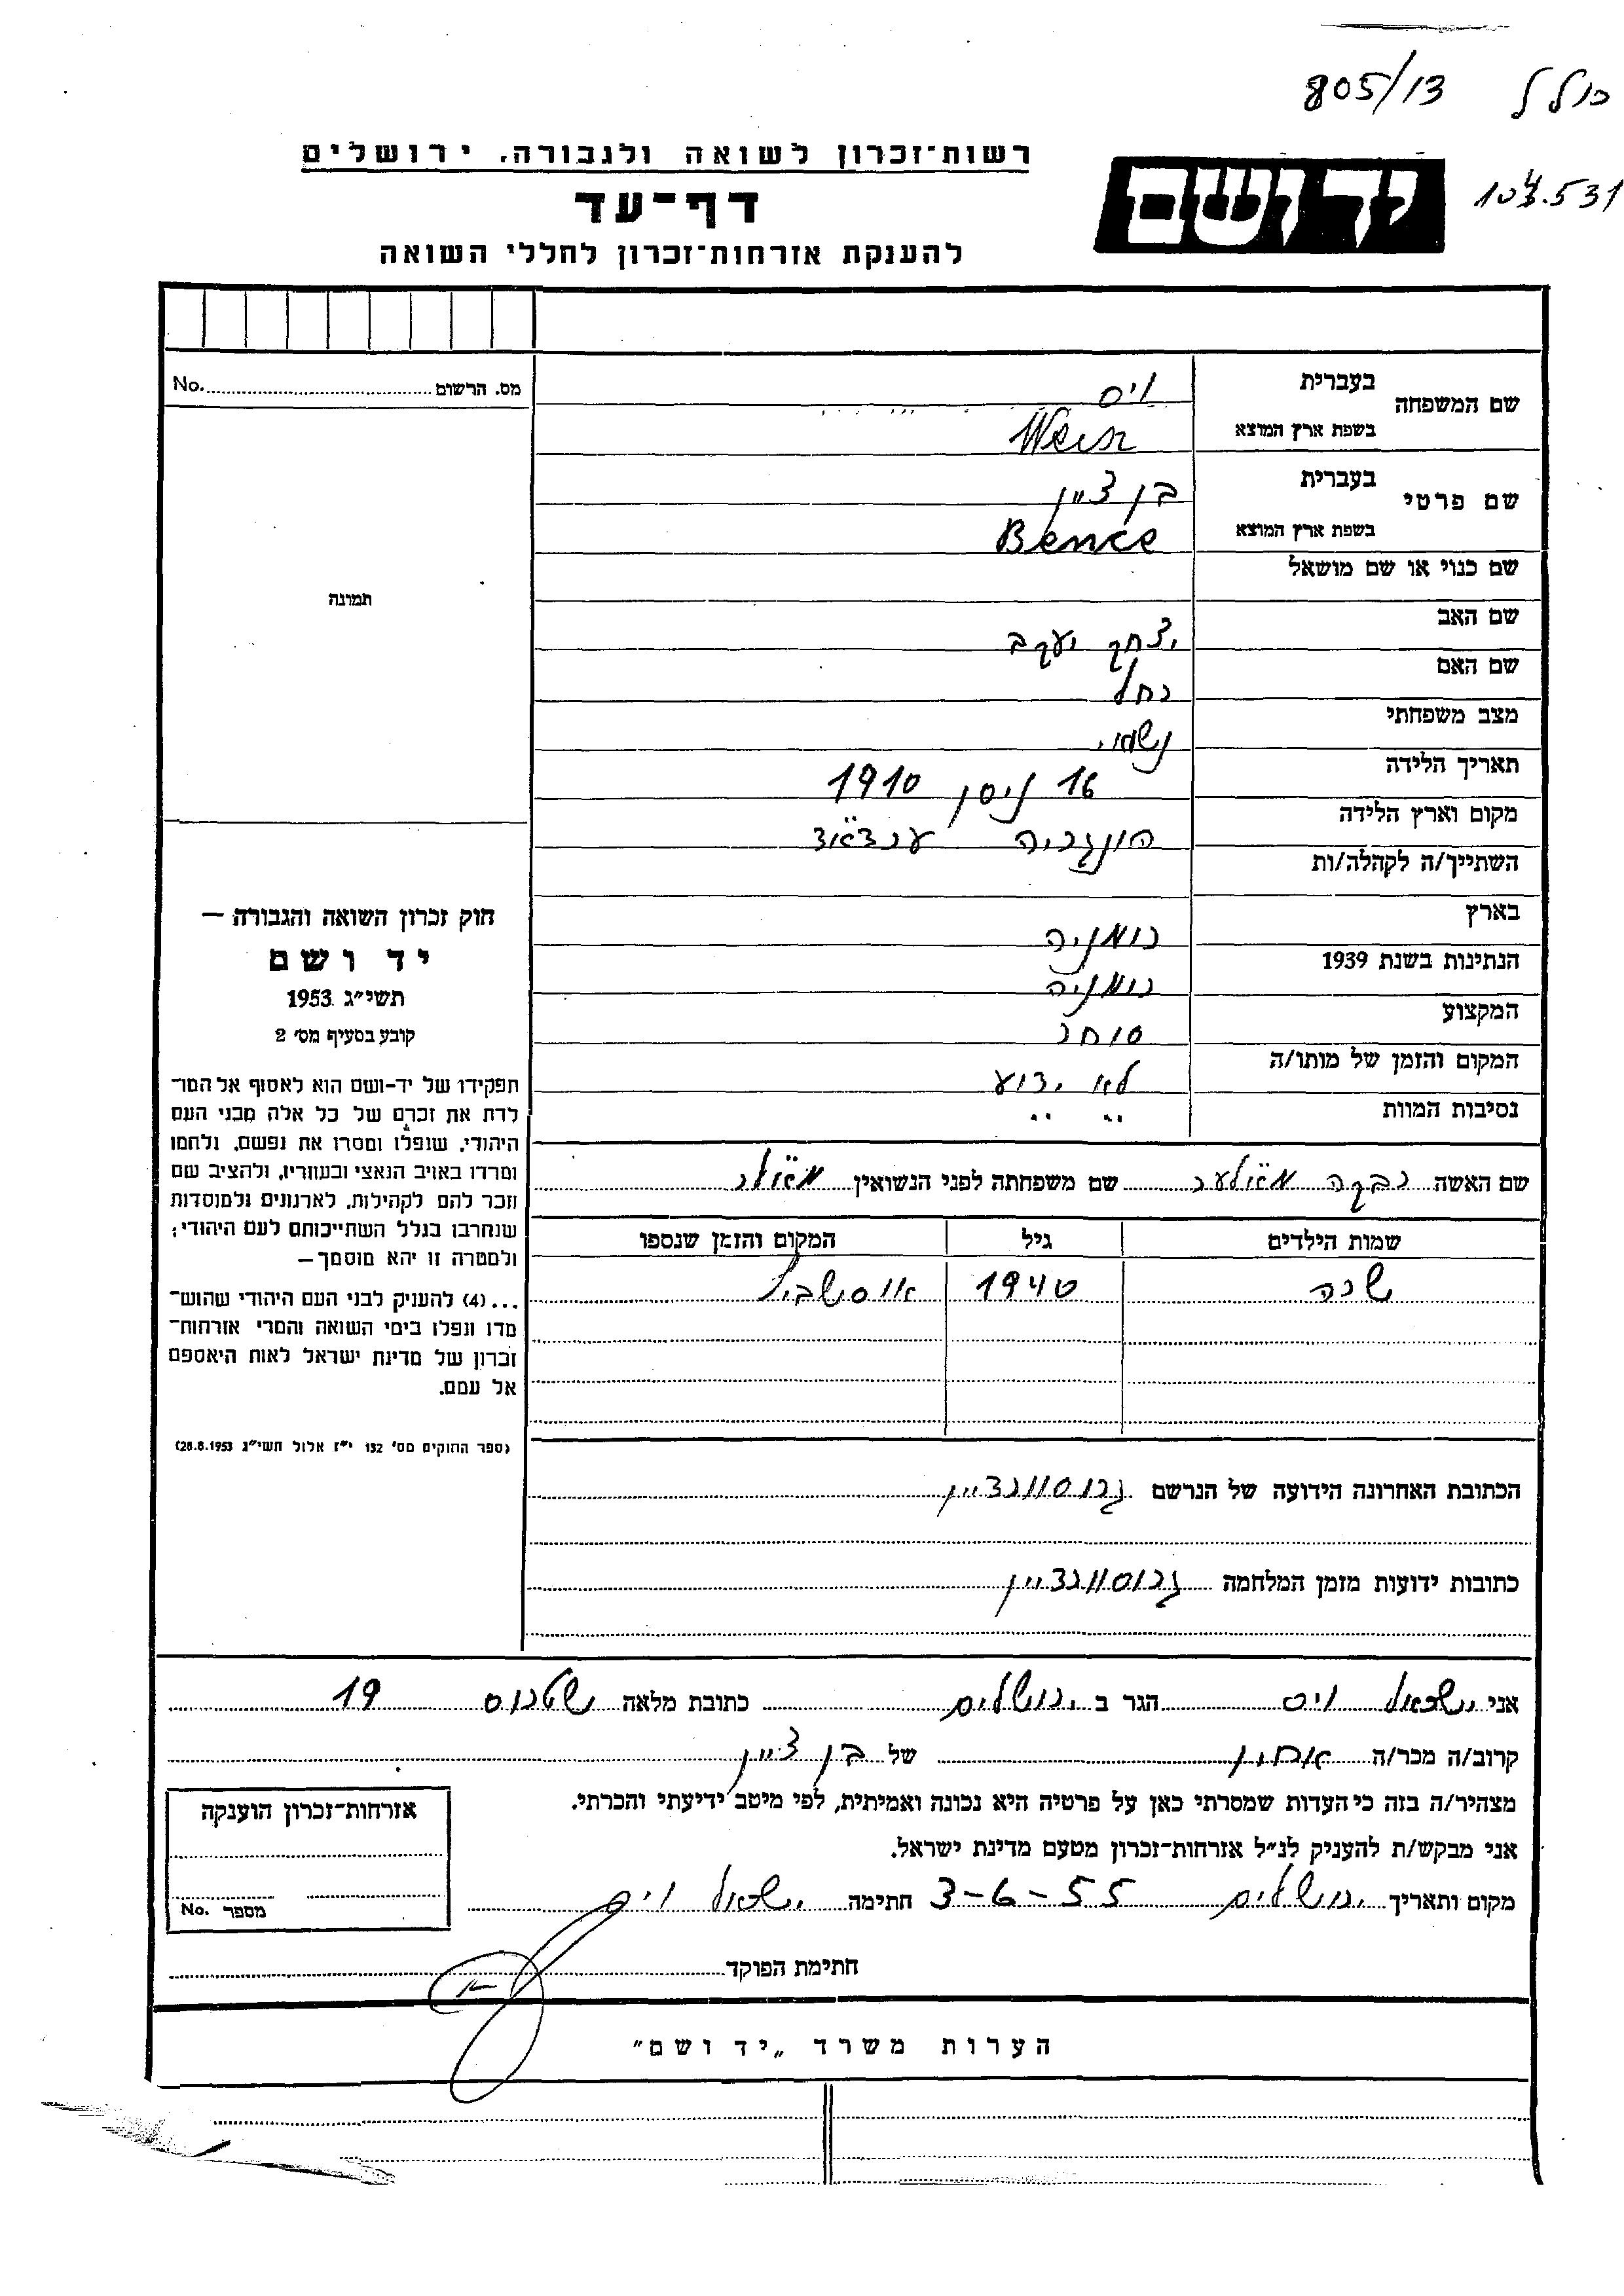 805/13 כולל
104.531
יד ושם
רשות־זכרון לשואה ולגבורה, ירושלים
דף־עד
להענקת אזרחות־זכרון לחללי השואה
מס. הרשום No.
שם המשפחה בעברית ויס
בשפת ארץ המוצא Weisz
שם פרטי בעברית בן ציון
בשפת ארץ המוצא Bence
שם כנוי או שם מושאל
שם האב יצחק יעקב
שם האם רחל
מצב משפחתי נשוי
תאריך הלידה 16 ניסן 1910
מקום וארץ הלידה הונגריה
השתייך/ה לקהלה/ות
בארץ רומניה
הנתינות בשנת 1939 רומניה
המקצוע סוחר
המקום והזמן של מותו/ה לא ידוע
נסיבות המוות " "
תמונה
חוק זכרון השואה והגבורה —
יד ושם
תשי"ג 1953
קובע בסעיף מס' 2
תפקידו של יד-ושם הוא לאסוף אל המו־
לדת את זכרם של כל אלה מבני העם
היהודי, שנפלו ומסרו את נפשם, נלחמו
ומרדו באויב הנאצי ובעוזריו, ולהציב שם
וזכר להם לקהילות, לארגונים ולמוסדות
שנחרבו בגלל השתייכותם לעם היהודי;
ולמטרה זו יהא מוסמך —
...(4) להעניק לבני העם היהודי שהוש־
מדו ונפלו בימי השואה והמרי אזרחות־
זכרון של מדינת ישראל לאות היאספם
אל עמם.
(ספר החוקים מס' 132 י"ז אלול תשי"ג 28.8.1953)
שם האשה רבקה מאללער שם משפחתה לפני הנשואין מאללר
שמות הילדים גיל המקום והזמן שנספו
שרה 1940 אוסשביץ
הכתובת האחרונה הידועה של הנרשם גרוסוורדיין
כתובות ידועות מזמן המלחמה גרוסוורדיין
אני ישראל ויס הגר ב ירושלים כתובת מלאה שטראוס 19
קרוב/ה מכר/ה אחיו של בן ציון
מצהיר/ה בזה כי העדות שמסרתי כאן על פרטיה היא נכונה ואמיתית, לפי מיטב ידיעתי והכרתי.
אני מבקש/ת להעניק לנ"ל אזרחות־זכרון מטעם מדינת ישראל.
מקום ותאריך ירושלים 3-6-55 חתימה ישראל ויס
אזרחות־זכרון הוענקה
מספר No.
חתימת הפוקד
הערות משרד „יד ושם"